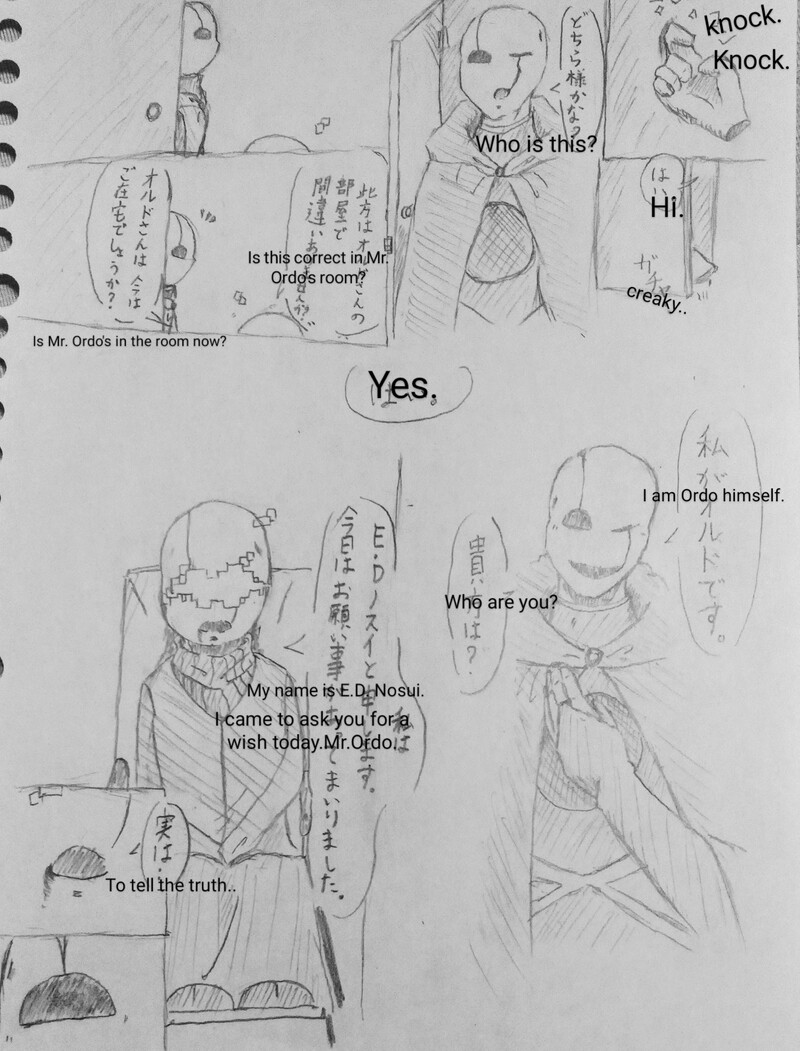 knock.
Knock.
はい
Hi.
ガチャ
creaky..
どちら様かな?
Who is this?
此方はオルドさんの
部屋で
間違い
Is this correct in Mr.
Ordo's room?
オルドさんは今は
ご在宅でしょうか?
Is Mr. Ordo's in the room now?
Yes.
私がオルドです。
I am Ordo himself.
貴方は?
Who are you?
私は
E.Dノスイと申します。
今日はお願い事があってまいりました。
My name is E.D. Nosui.
I came to ask you for a
wish today.Mr.Ordo.
実は..
To tell the truth..